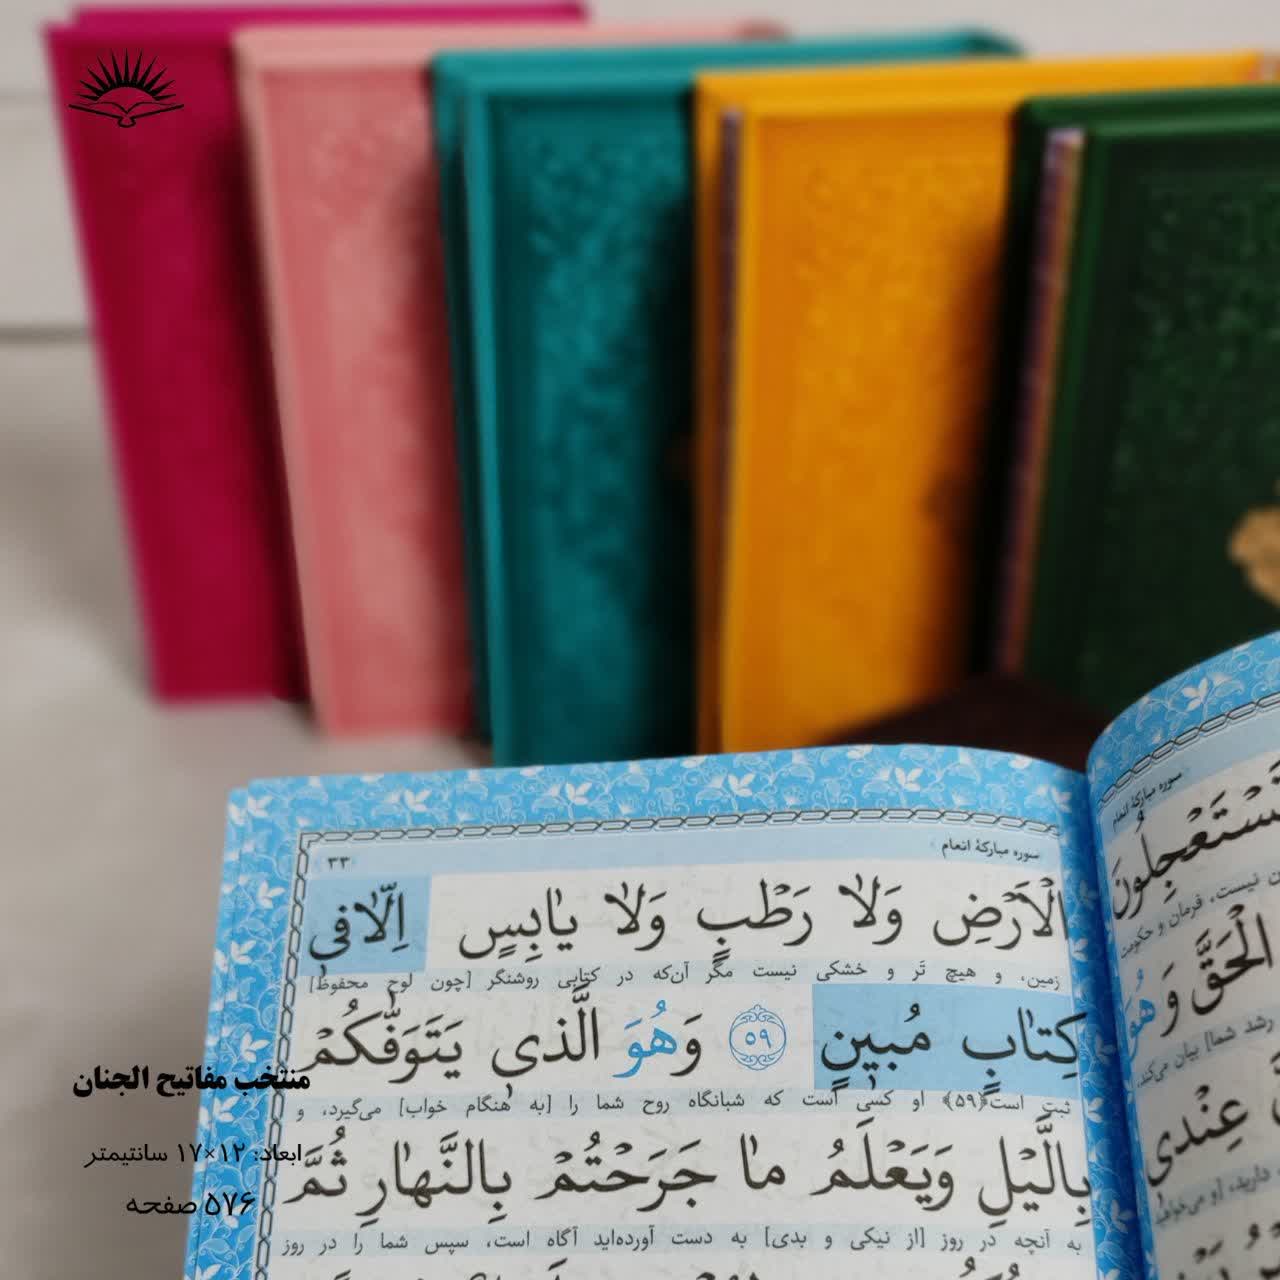 سوره مبارکهٔ انعام
۳۳
الْاَرْضِ وَلٰا رَطْبٍ وَلٰا یٰابِسٍ اِلّٰا فی
زمین، و هیچ تَر و خشکی نیست مگر آن‌که در کتابی روشنگر [چون لوح محفوظ]
کِتٰابٍ مُبینٍ ۵۹ وَهُوَ الَّذی یَتَوَفّٰکُمْ
ثبت است﴿۵۹﴾ او کسی است که شبانگاه روح شما را [به هنگام خواب] می‌گیرد، و
بِالَّیْلِ وَیَعْلَمُ مٰا جَرَحْتُمْ بِالنَّهٰارِ ثُمَّ
به آنچه در روز [از نیکی و بدی] به دست آورده‌اید آگاه است، سپس شما را در روز
سوره مبارکهٔ انعام
تَسْتَعْجِلُونَ
نیست، فرمان و حکومت
الْحَقَّ وَهُوَ
رشد شما] بیان می‌کند،
عِنْدی
دارید، [و می‌خواهید
منتخب مفاتیح الجنان
ابعاد: ۱۲×۱۷ سانتیمتر
۵۷۶ صفحه